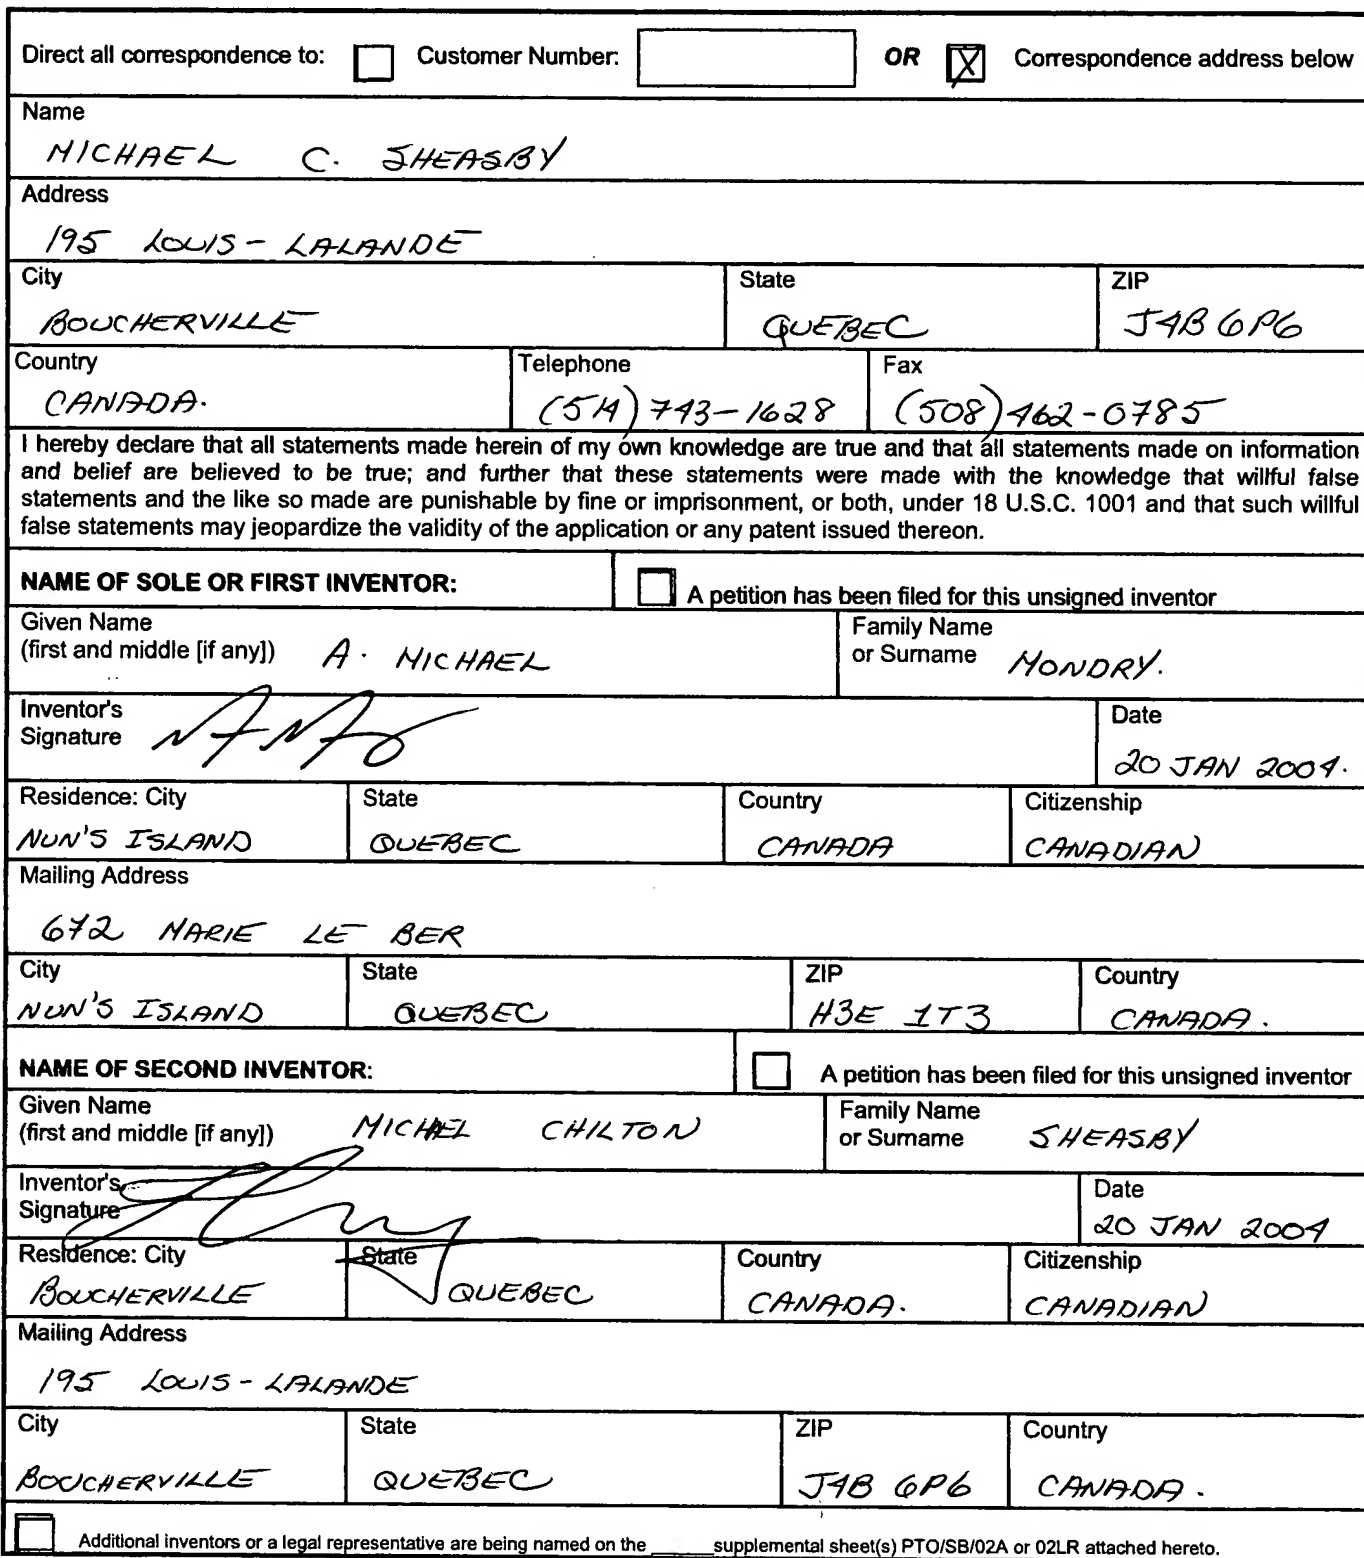 Direct all correspondence to: Customer Number: OR X Correspondence address below
Name
MICHAEL C. SHEASBY
Address
195 LOUIS-LALANDE
City State ZIP
BOUCHERVILLE QUEBEC J4B 6P6
Country Telephone Fax
CANADA. (514) 743-1628 (508) 462-0785
I hereby declare that all statements made herein of my own knowledge are true and that all statements made on information
and belief are believed to be true; and further that these statements were made with the knowledge that willful false
statements and the like so made are punishable by fine or imprisonment, or both, under 18 U.S.C. 1001 and that such willful
false statements may jeopardize the validity of the application or any patent issued thereon.
NAME OF SOLE OR FIRST INVENTOR: A petition has been filed for this unsigned inventor
Given Name Family Name
(first and middle [if any]) A. MICHAEL or Surname MONDRY.
Inventor's Date
Signature 20 JAN 2004.
Residence: City State Country Citizenship
NUN'S ISLAND QUEBEC CANADA CANADIAN
Mailing Address
672 MARIE LE BER
City State ZIP Country
NUN'S ISLAND QUEBEC H3E 1T3 CANADA.
NAME OF SECOND INVENTOR: A petition has been filed for this unsigned inventor
Given Name Family Name
(first and middle [if any]) MICHAEL CHILTON or Surname SHEASBY
Inventor's Date
Signature 20 JAN 2004
Residence: City State Country Citizenship
BOUCHERVILLE QUEBEC CANADA. CANADIAN
Mailing Address
195 LOUIS-LALANDE
City State ZIP Country
BOUCHERVILLE QUEBEC J4B 6P6 CANADA.
Additional inventors or a legal representative are being named on the ______ supplemental sheet(s) PTO/SB/02A or 02LR attached hereto.